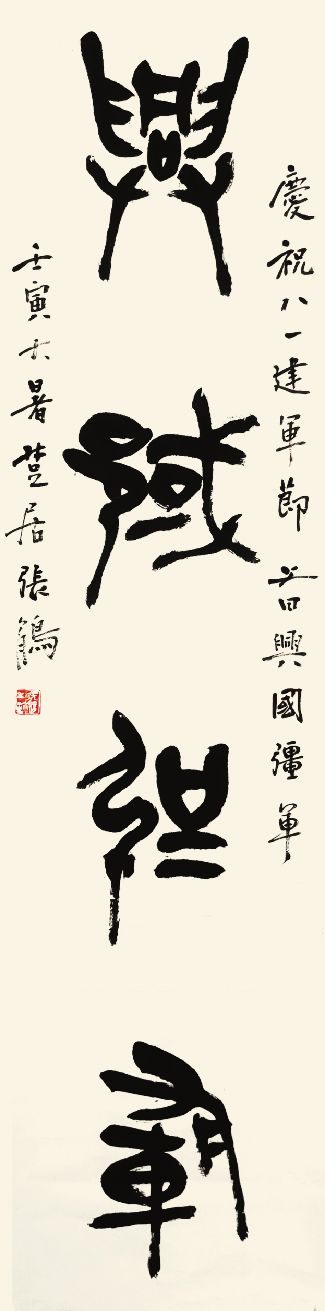 慶祝八一建軍節 書興國彊軍
興國彊軍
壬寅大暑楚居張鶴